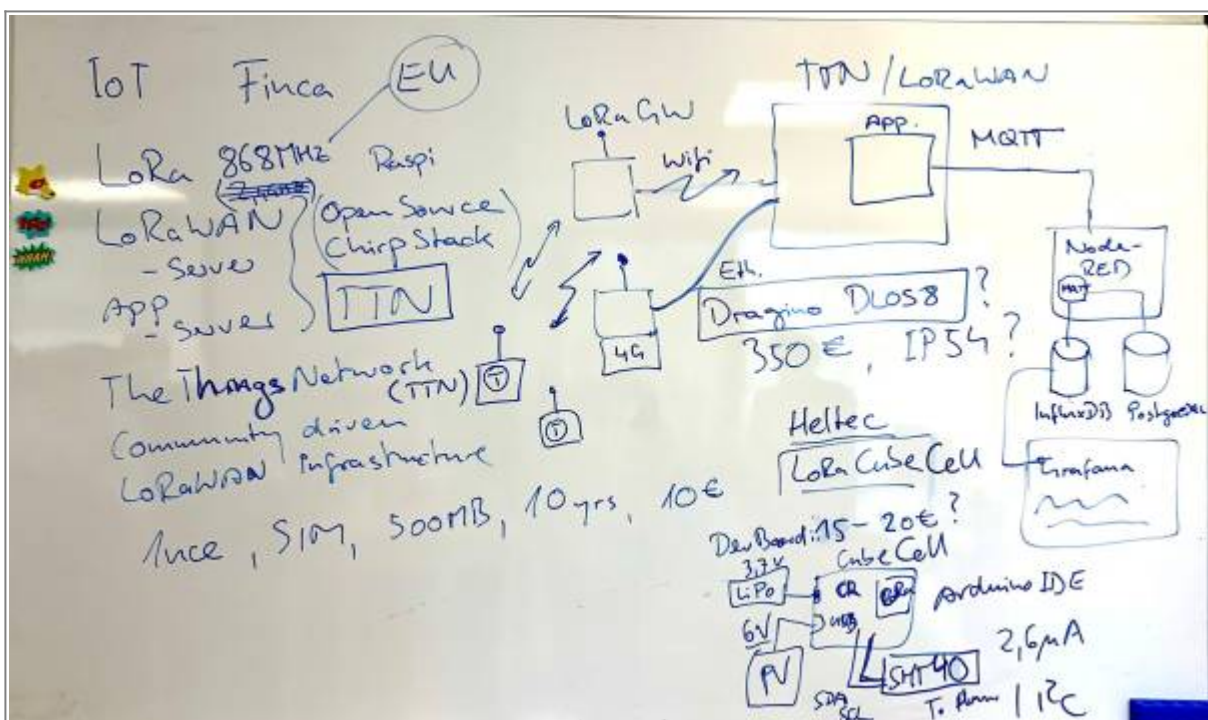 IoT Finca EU
LoRa 868MHz Raspi
LoRaWAN
- Server
(Open Source
ChirpStack)
App
- Server
TTN
The Things Network
(TTN)
Community driven
LoRaWAN infrastructure
1nce, SIM, 500MB, 10yrs, 10€
LoRa GW
Wifi
4G
Eth.
T
T
TTN/LoRaWAN
App.
MQTT
Node-
RED
MQTT
InfluxDB
Grafana
Dragino DLOS8 ?
350€, IP54?
Heltec
LoRa CubeCell
DevBoard: 15-20€?
CubeCell
3,7V
LiPo
LoRa
USB
Arduino IDE
6V
PV
SHT40
2,6µA
SDA
SCL
I²C